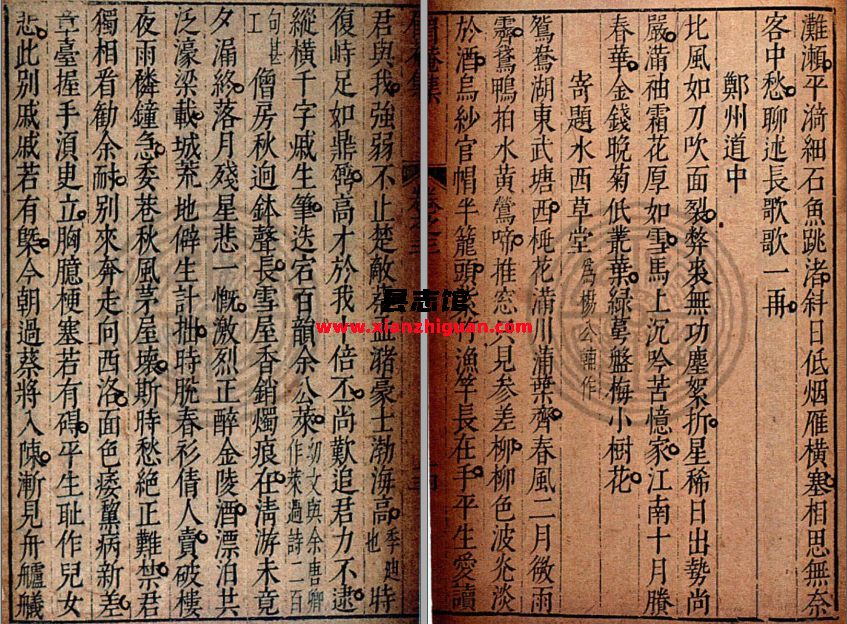 灘瀨平漪細石魚跳渚斜日低烟雁橫塞相思無奈
客中愁聊述長歌歌一再
鄭州道中
北風如刀吹面裂弊裘無功塵絮折星稀日出勢尚
嚴滿袖霜花厚如雪馬上沉吟苦憶家江南十月賸
春華金錢晚菊低叢葉綠萼盤梅小樹花
寄題水西草堂 為楊公輔作
鴛鴦湖東武塘西桃花滿川蒲葉齊春風二月微雨
霽鵞鴨拍水黃鶯啼推窓只見參差柳柳色波光淡
於酒烏紗官帽半籠頭紫竹漁竿長在手平生愛讀
卷之三
君與我強弱不止楚敵秦 諸豪士渤海高 季迪也 時
復峙足如鼎鬵高才於我十倍丕尚歎追君力不逮
縱橫千字戚生筆迭宕百韻余公萊 幼文與余唐卿作萊過詩二百
句甚工 僧房秋迥鉢聲長雪屋香銷燭痕在清游未竟
夕漏終落月殘星悲一慨激烈正醉金陵酒漂泊共
泛濠梁載城荒地僻生計拙時脫春衫倩人賣破樓
夜雨隣鐘急委巷秋風茅屋壞斯時愁絕正難禁君
獨相看勸余耐別來奔走向西洛面色痿黧病新差
章臺握手湏臾立胸臆梗塞若有碍平生耻作兒女
悲此別戚戚若有槩今朝過蔡將入陳漸見舟艫艤
县志馆
www.xianzhiguan.com